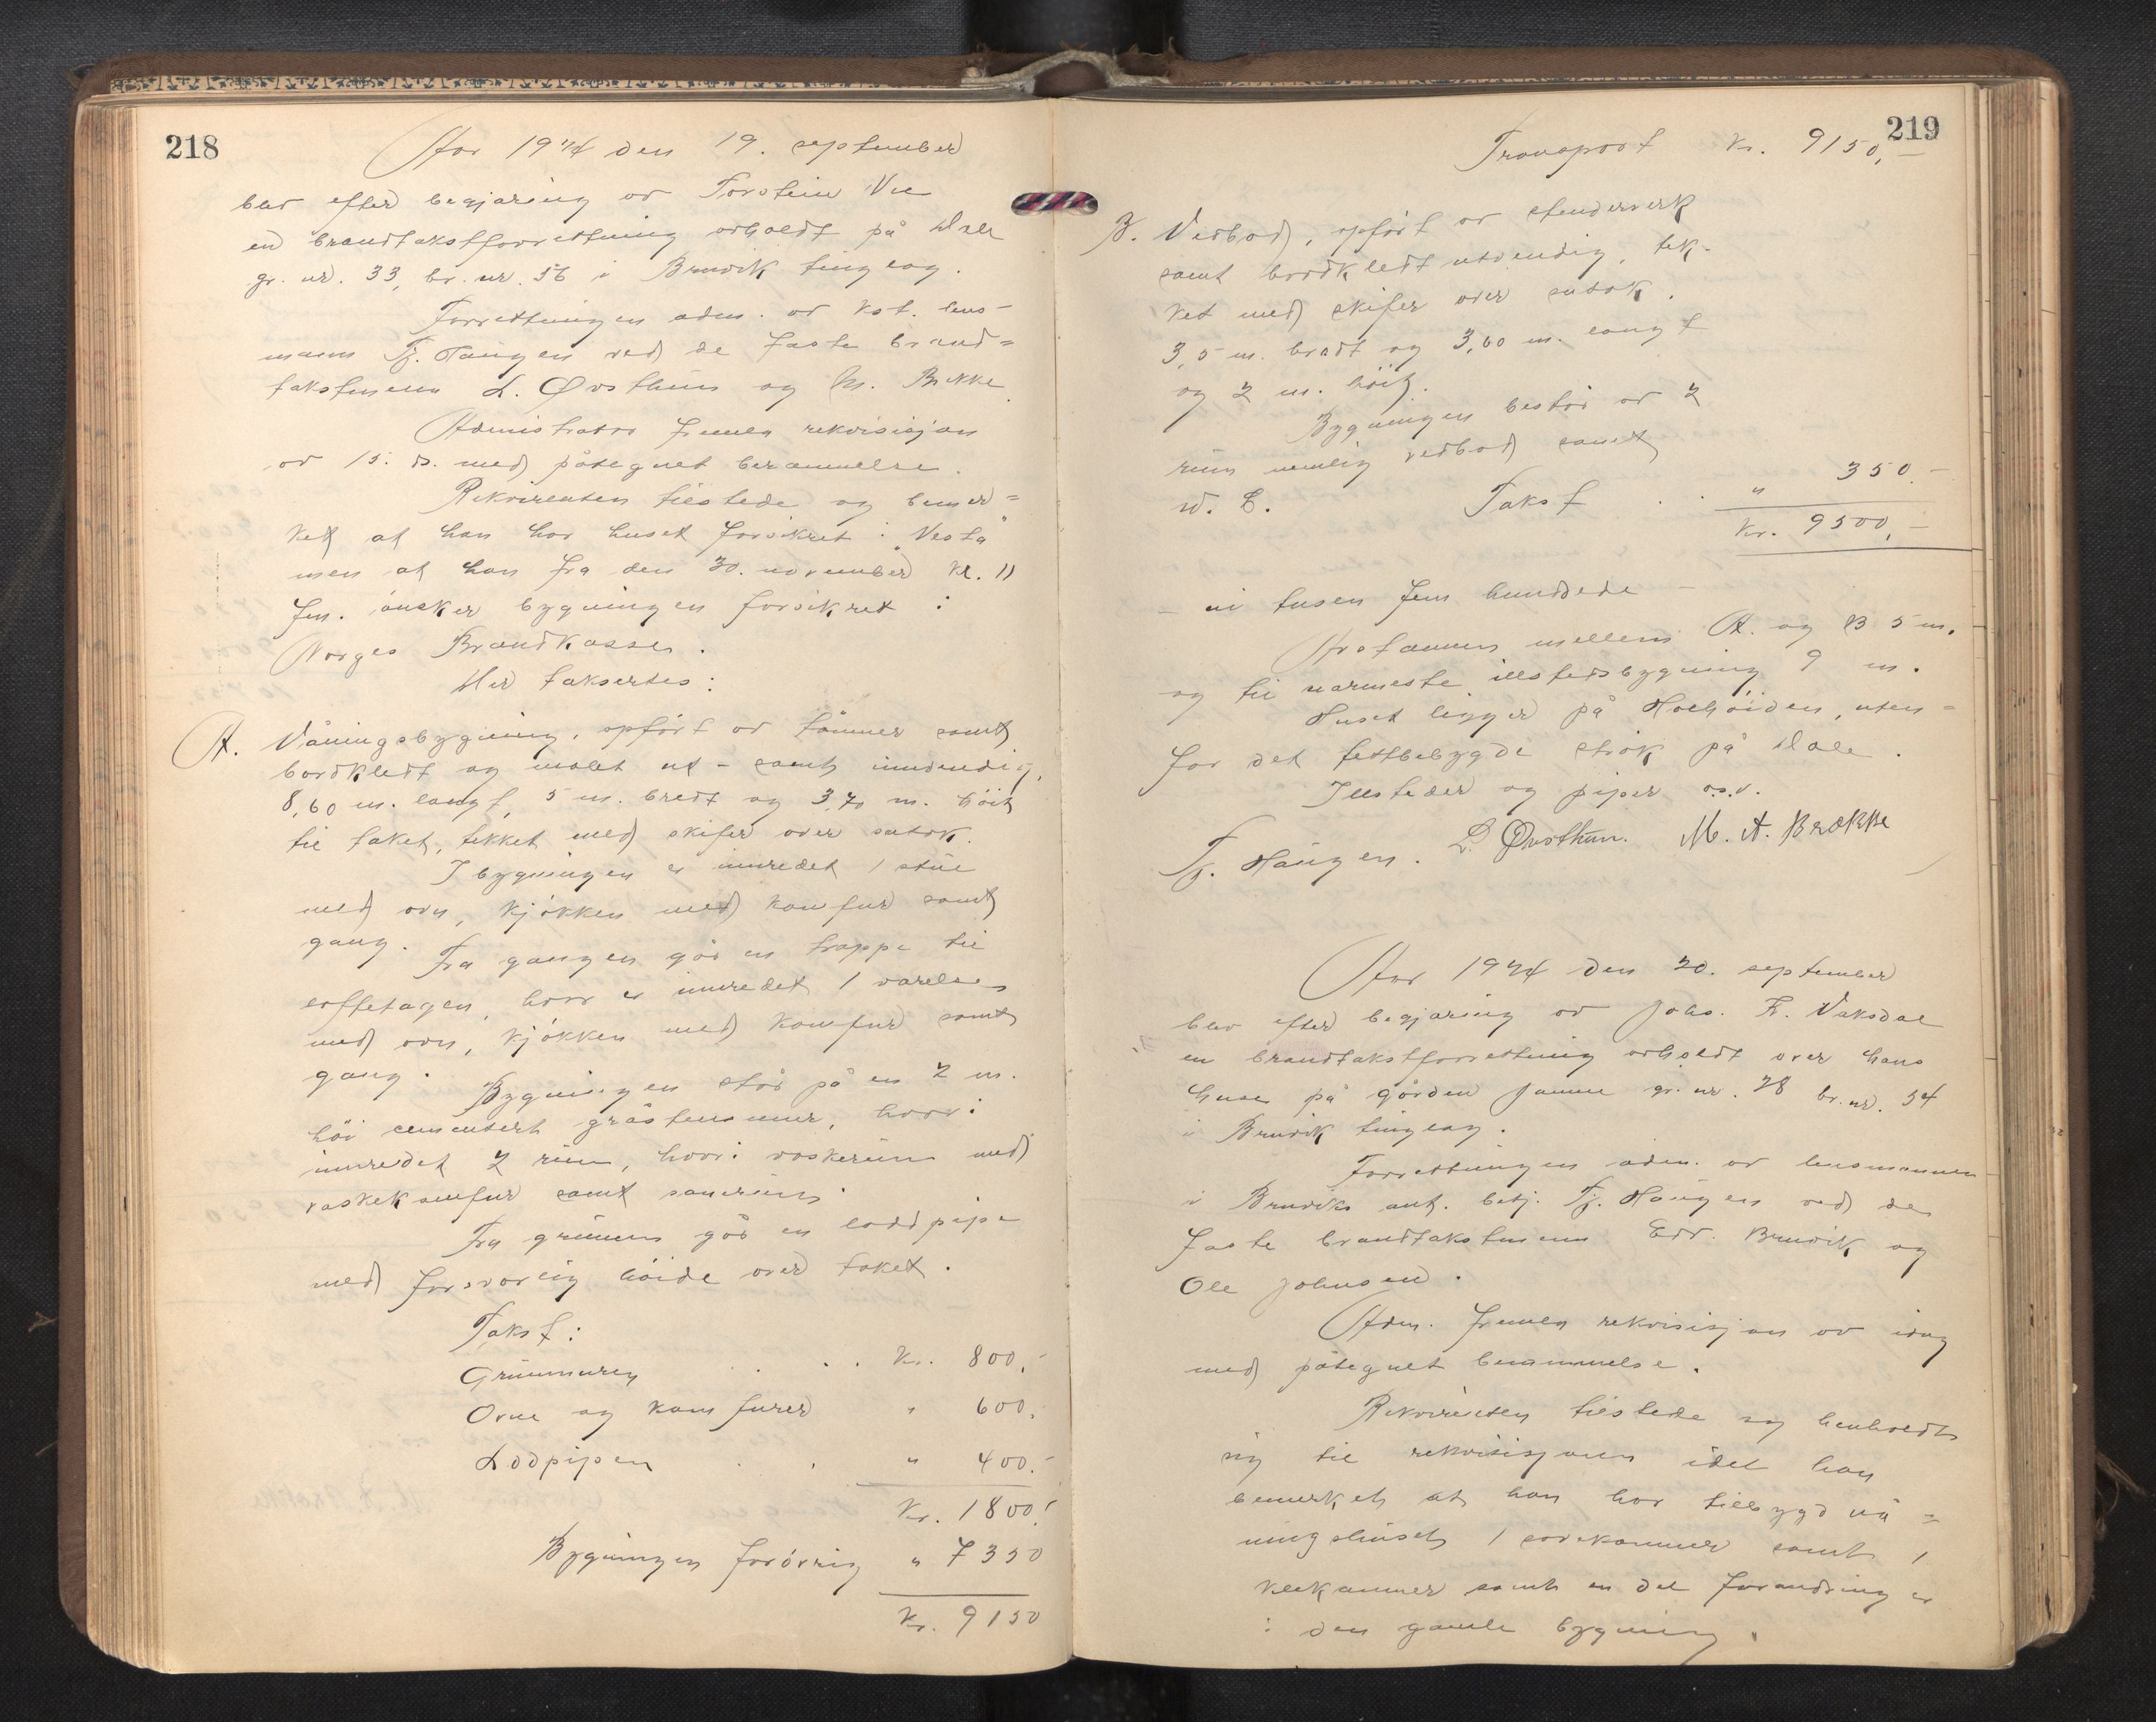 218
Aar 1924 den 19. september
blev efter begjæring av Torstein Vee
en brandtakstforretning avholdt på Dale
gr. nr. 33, br. nr. 56 i Bruvik tinglag.
Forretningen adm. av kst. lens-
mann Tj. Haugen ved de faste brand=
takstmenn L. Øvsthun og M. Brække.
Administrator fremla rekvisisjon
av 15. ds. med påtegnet berammelse.
Rekvirenten tilstede og bemer=
ket at han har huset forsikret i "Vesta"
men at han fra den 30. november kl. 11
fm. ønsker bygningen forsikret i
Norges Brandkasse.
Her taksertes:
A. Våningsbygning, opført av tømmer samt
bordkledt og malet ut- samt innvendig,
8,60 m. langt, 5 m. bredt og 3,70 m. høit
til taket, tekket med skifer over sutak.
I bygningen er innredet 1 stue
med ovn, kjøkken med komfur samt
gang.
Fra gangen går en trappe til
loftetagen, hvor er innredet 1 værelse
med ovn, kjøkken med komfur samt
gang.
Bygningen står på en 2 m.
høi cementert gråstensmur, hvori
innredet 2 rum, hvori vaskerum med
vaskekomfur samt
Fra grunnen går en loddpipe
med forsvarlig høide over taket.
Takst:
Grunnmuren . . . Kr. 800,-
Ovne og komfurer " 600,
Lodpipen . . " 400.-
Kr. 1800,-
Bygningen forøvrig " 7350
Kr. 9150
219
Transport Kr. 9150,-
B. Vedbod, opført av stenderverk
samt bordkledt utvendig, tek-
ket med skifer over sutak.
3,5 m. bredt og 3,60 m. langt
og 2 m. høit.
Bygningen består av 2
rum nemlig vedbod samt
W. C. Takst . . " 350.-
Kr. 9500,-
- ni tusen fem hundrede -
Avstannen mellem A. og B 5 m.
og til nærmeste illstedsbygning 9 m.
Huset ligger på uten=
for det tettbebygde strøk på Dale.
Illsteder og piper o.s.v.
Tj. Haugen. L. Øvsthun. M. A. Brække
Aar 1924 den 20. september
blev efter begjæring av Johs. Vaksdal
en brandtakstforretning avholdt over hans
huse på gården Jamne gr. nr. 28 br. nr. 54
i Bruvik tinglag.
Forretningen adm. av lensmannen
i Bruviks aut. betj. Tj. Haugen ved de
faste brandtakstmenn Edv. Bruvik og
Ole Johnsen.
Adm. fremla rekvisisjon av idag
med påtegnet berammelse.
Rekvirenten tilstede og henholdt
sig til rekvisisjonen idet han
bemerket at han har tilbygd vå=
ningshuset 1 sovekammer samt 1
klekammer samt en del forandring er
i den gamle bygning.